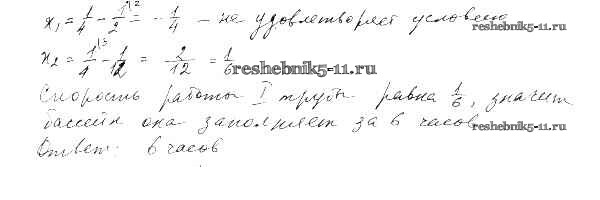 x₁ = 1/4 - 1/2 = - 1/4 - не удовлетворяет условию
x₂ = 1/4 - 1/12 = 2/12 = 1/6
reshebnik5-11.ru
Скорость работы I трубы равна 1/6, значит
бассейн она заполняет за 6 часов
reshebnik5-11.ru
Ответ: 6 часов